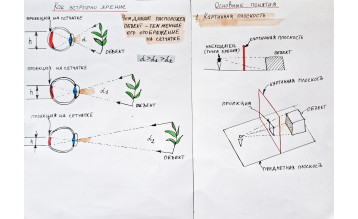 Как устроено зрение
Чем дальше расположен
объект - тем меньше
его отображение
на сетчатке
проекция на сетчатке
h
α
объект
α > α1 > α2
проекция на сетчатке
h
α1
объект
проекция на сетчатке
h
α2
объект
Основные понятия
Картинная плоскость
картинная плоскость
наблюдатель
(точка зрения)
объект
картинная плоскость
проекция
объект
предметная плоскость